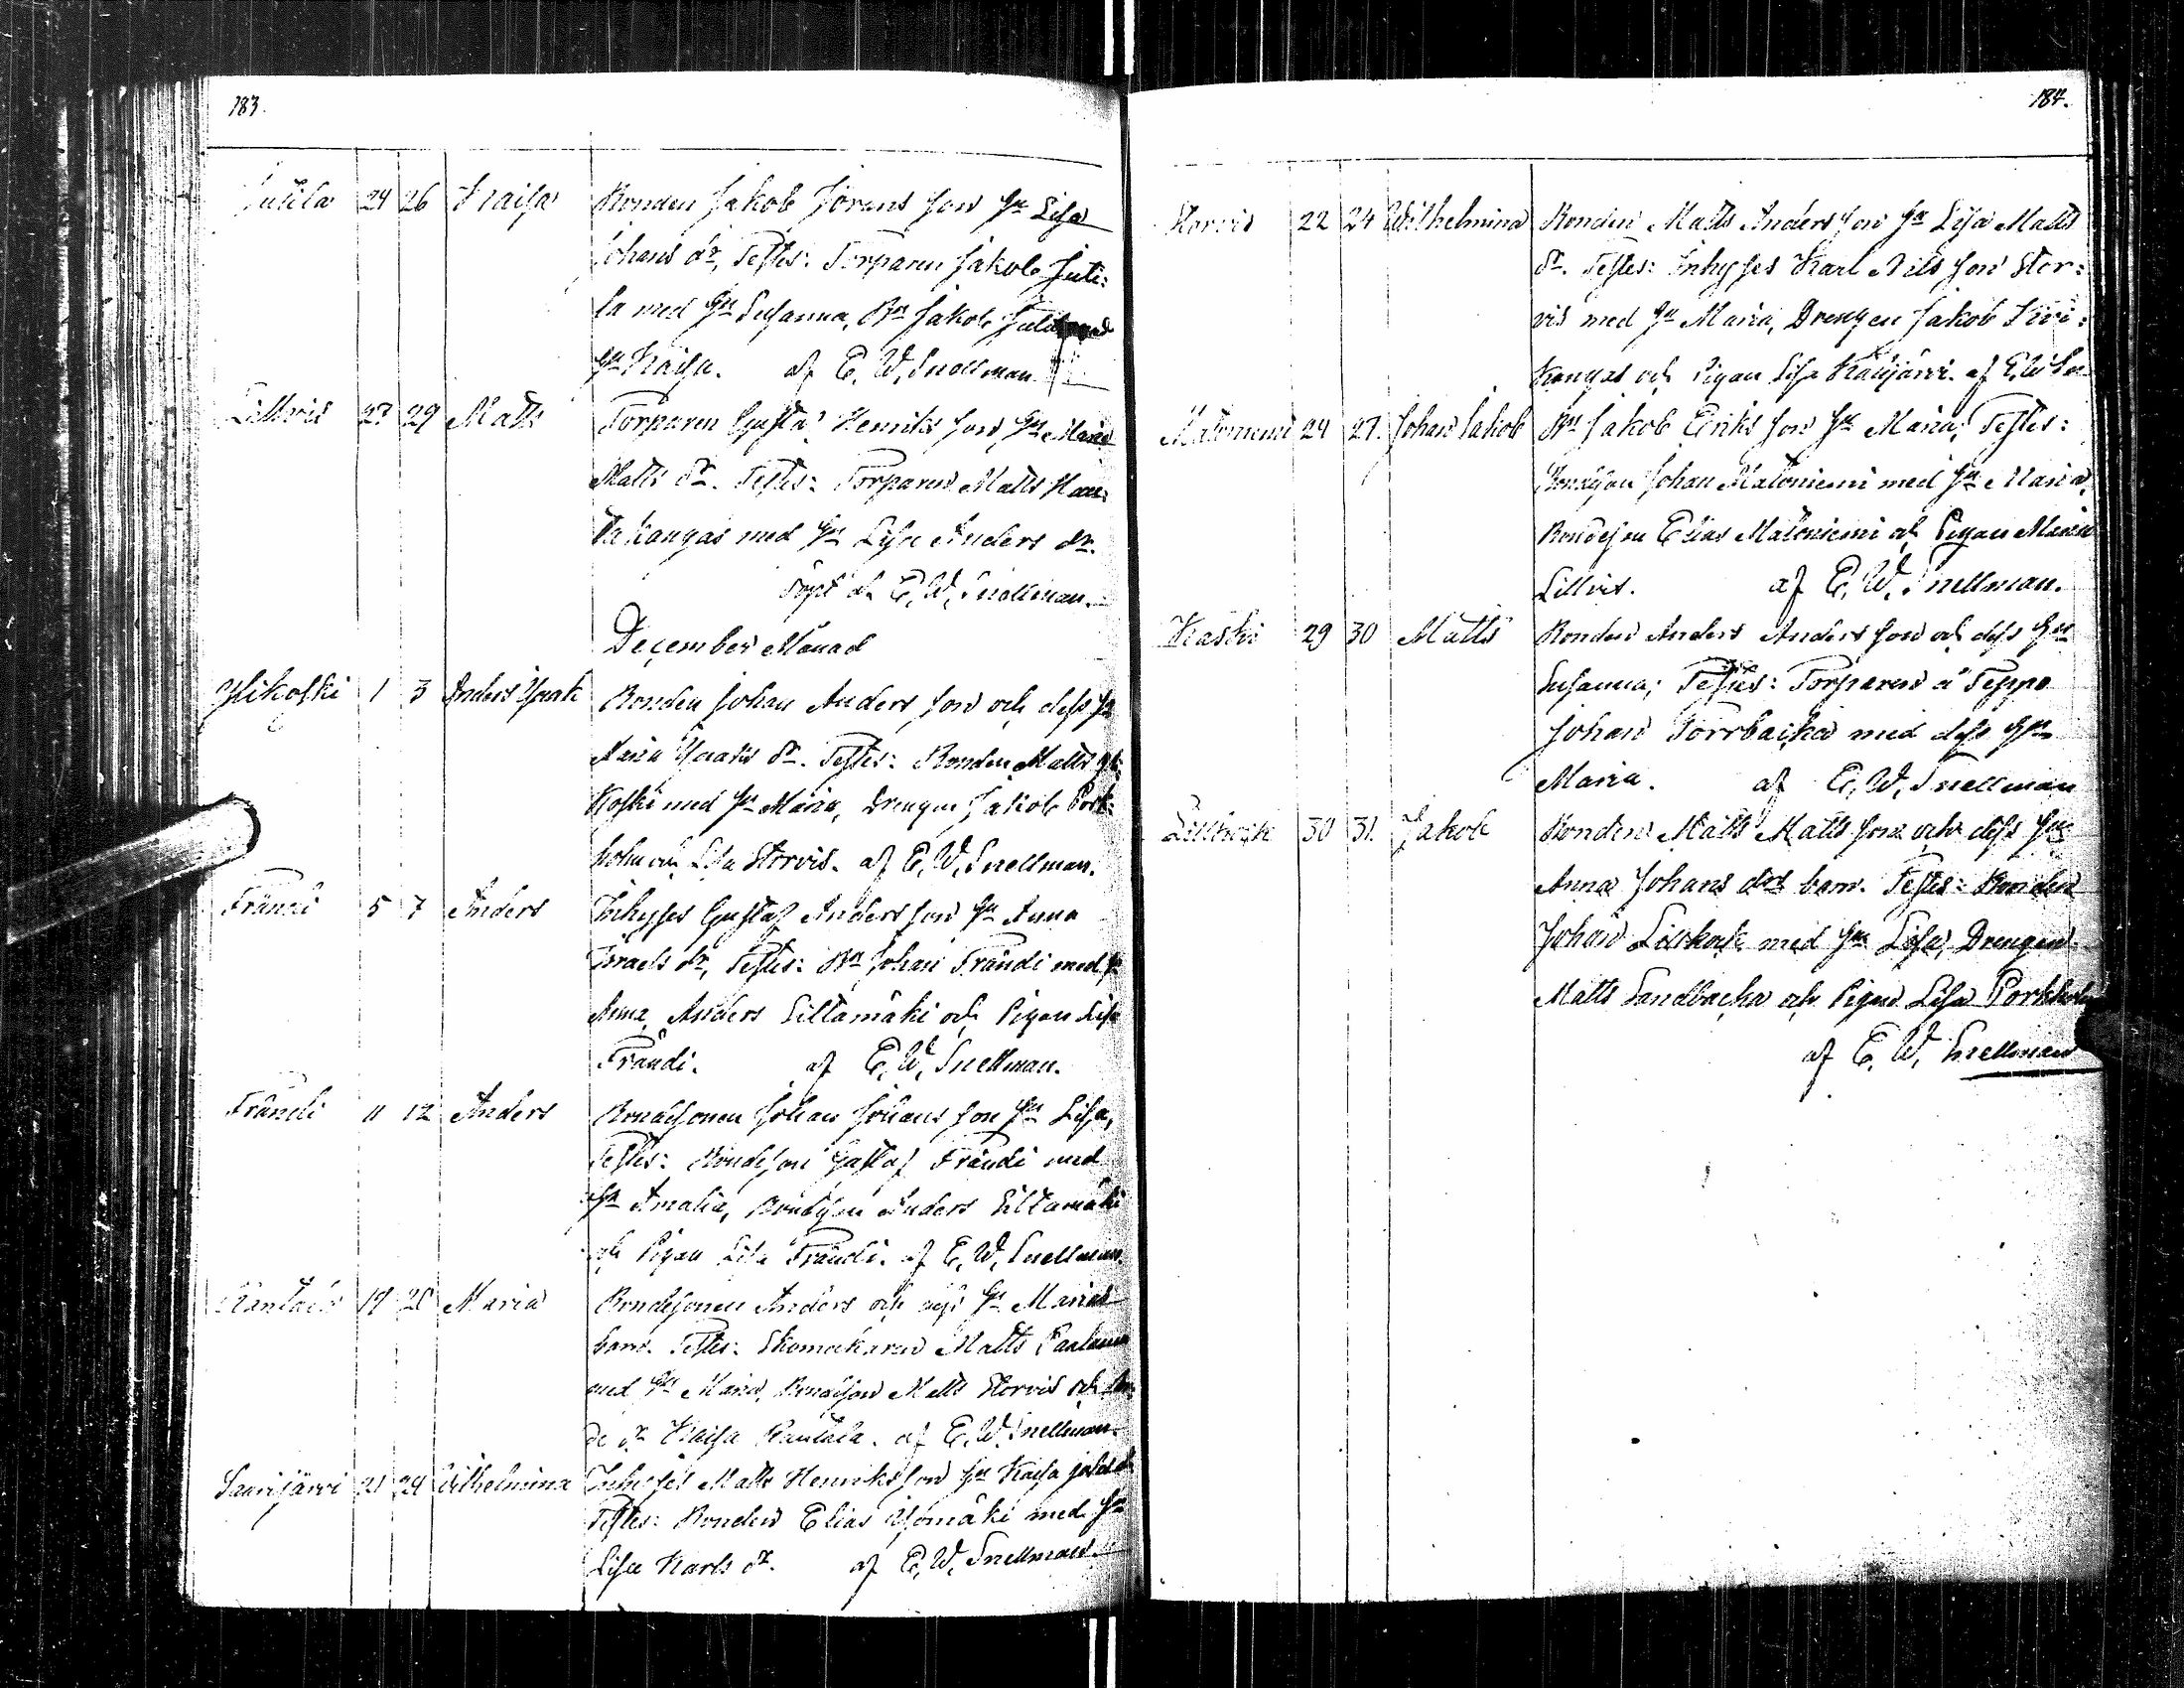 183.
Jutila 24 26 Kaisa Bonden Jakob Jörans son Hu Lisa
Johans dr, Testes: Torparen Jakob Juti:
la med Hu Susanna, Bn Jakob
Hu Kaisa. af E. W. Snellman
Lillvis 27 29 Matts Torparen Gustaf Henriks son, Hu Maria
Matts dr. Testes: Torparen Matts
kangas med Hu Lisa Anders dr.
Döpt af E. W. Snellman.
December Månad
Ylikoski 1 3 Anders Isaak Bonden Johan Anders son och dess Hu
Maria Isaaks dr. Testes: Bonden Matts Yli
koski med Hu Maria, Drengen Jakob Pork:
holm och Lisa Storvis. af E. W. Snellman.
Frändi 5 7 Anders Inhyses Gustaf Anders son Hu Anna
Israels dr, Testes: Bn Johan Frändi med Hu
Anna, Anders Siltamäki och Pigan Lisa
Frändi. af E. W. Snellman.
Frändi 11 12 Anders Bondesonen Johan Johans son Hu Lisa,
Testes: Bondeson Gustaf Frändi med
Hu Amalia, Bondeson Anders Siltamäki
och Pigan Lisa Frändi. af E. W. Snellman.
Rantala 19 20 Maria Bondesonen Anders och dess Hu Marias
barn. Testes: Skomakaren Matts
med Hu Maria, Bondeson Matts Storvis och Bon
de dr Kaisa Rantala. af E. W. Snellman
Saarijärvi 21 24 Wilhelmina Inhyses Matts Henriks son Hu Kaisa
Testes: Bonden Elias med Hu
Lisa Karls dr. af E. W. Snellman.
184.
Storvis 22 24 Wilhelmina Bonden Matts Anders son Hu Lisa Matts
dr. Testes: Inhyses Karl Nils son Stor:
vis med Hu Maria, Drengen Jakob Kivi:
kangas och Pigan Lisa Kalijärvi. af E. W. Sn
Matoniemi 24 27. Johan Jakob Bn Jakob Eriks son Hu Maria, Testes:
Bondeson Johan Matoniemi med Hu Maria,
Bondeson Elias Matoniemi och Pigan Maria
Lillvis. af E. W. Snellman.
Kaski 29 30 Matts Bonden Anders Anders son och dess Hu
Susanna; Testes: Torparen å Teppo
Johan Torrbacka med dess Hu
Maria. af E. W. Snellman
Lillkack 30 31. Jakob Bonden Matts Matts son och dess Hu
Anna Johans drs barn. Testes: Bonden
Johan Lillkack med Hu Lisa, Drengen
Matts Sandbacka och Pigan Lisa Porkholm
af E. W. Snellman